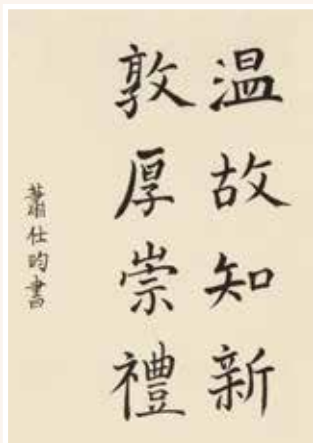 温故知新
敦厚崇禮
蕭仕昀書